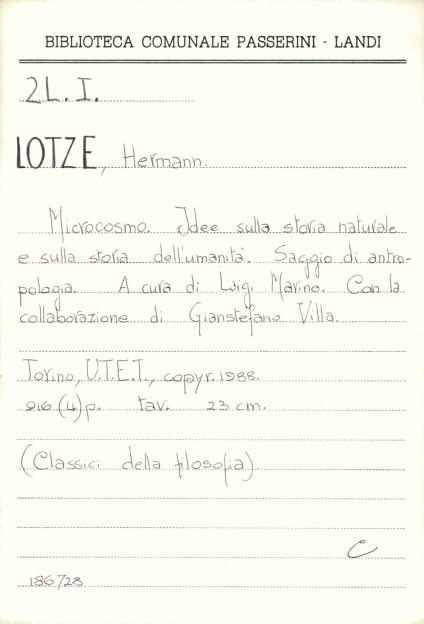 BIBLIOTECA COMUNALE PASSERINI - LANDI
2L. I.
LOTZE, Hermann.
Microcosmo. Idee sulla storia naturale
e sulla storia dell'umanità. Saggio di antro-
pologia. A cura di Luigi Marino. Con la
collaborazione di Gianstefano Villa.
Torino, U.T.E.T., copyr. 1988.
916 (4) p. tav. 23 cm.
(Classici della filosofia).
C
186728